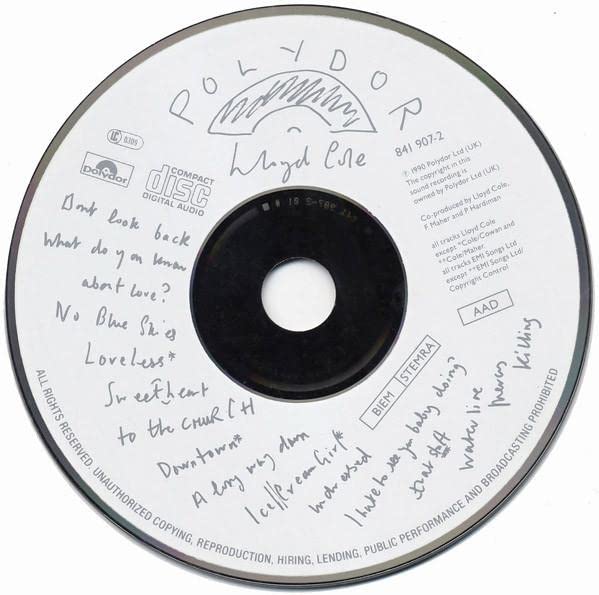 POLYDOR
Lloyd Cole
LC 0309
Polydor
COMPACT
disc
DIGITAL AUDIO
841 907-2
℗ 1990 Polydor Ltd (UK)
The copyright in this
sound recording is
owned by Polydor Ltd (UK)
Co-produced by Lloyd Cole,
F Maher and P Hardiman
all tracks Lloyd Cole
except *Cole/Cowan and
**Cole/Maher.
all tracks EMI Songs Ltd
except **EMI Songs Ltd/
Copyright Control
AAD
BIEM STEMRA
Dont look back
What do you know
about love?
No Blue Skies
Loveless*
Sweetheart
to the CHURCH
Downtown**
A long way down
Ice Cream Girl*
undressed
I hate to see you baby doing
that stuff
waterline
mercy
killing
ALL RIGHTS RESERVED. UNAUTHORIZED COPYING, REPRODUCTION, HIRING, LENDING, PUBLIC PERFORMANCE AND BROADCASTING PROHIBITED